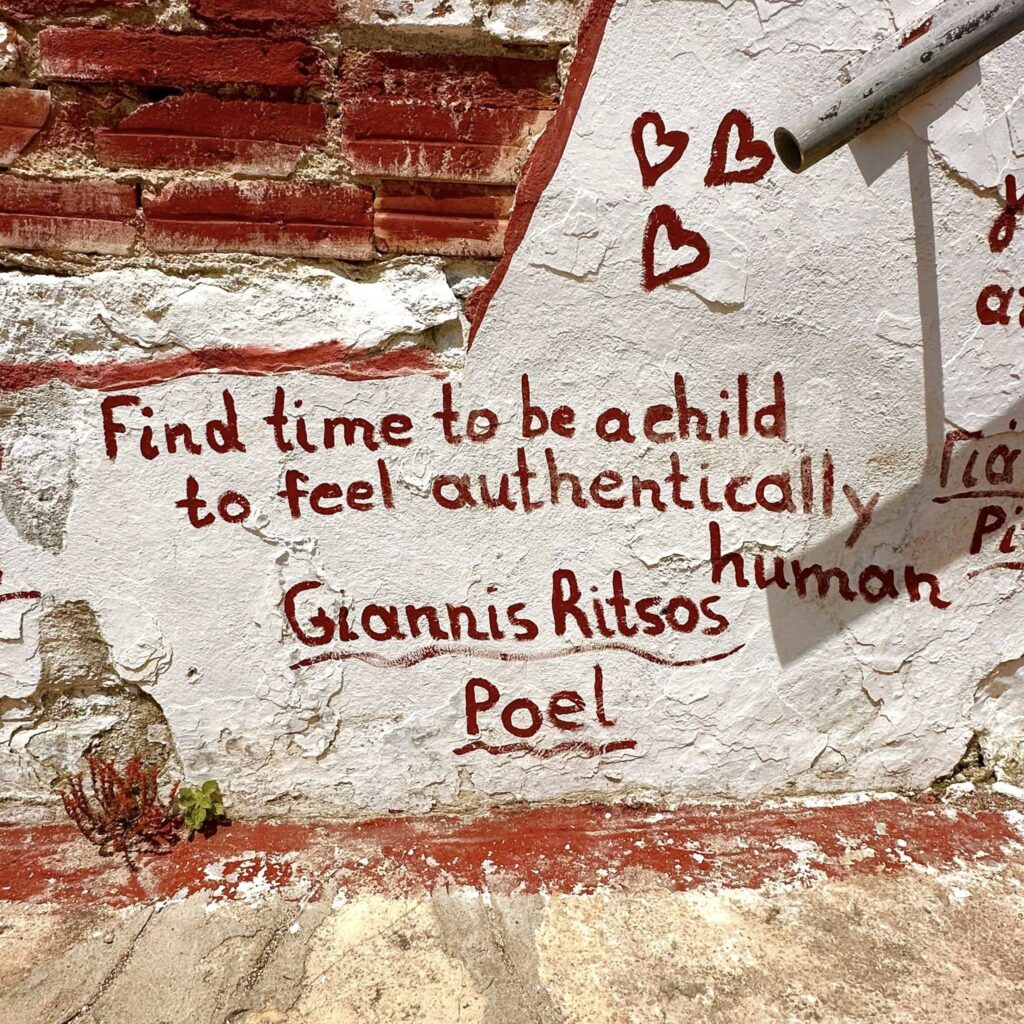 Find time to be a child
to feel authentically
human
Giannis Ritsos
Poel